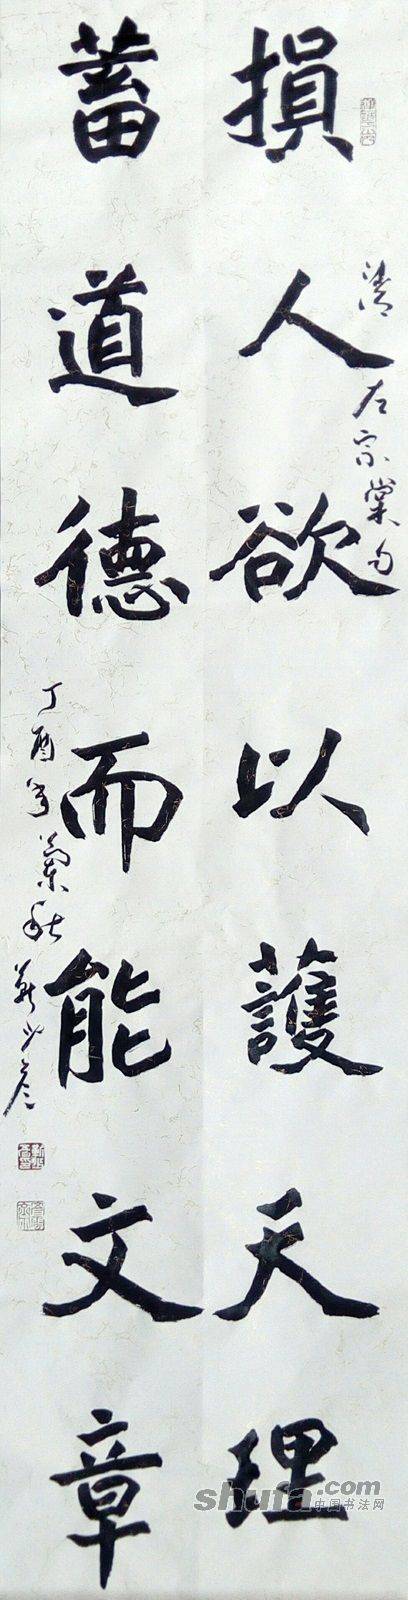 損人欲以護天理
清左宗棠句
蓄道德而能文章
丁酉年蘭秋
shufa.com
中国书法网